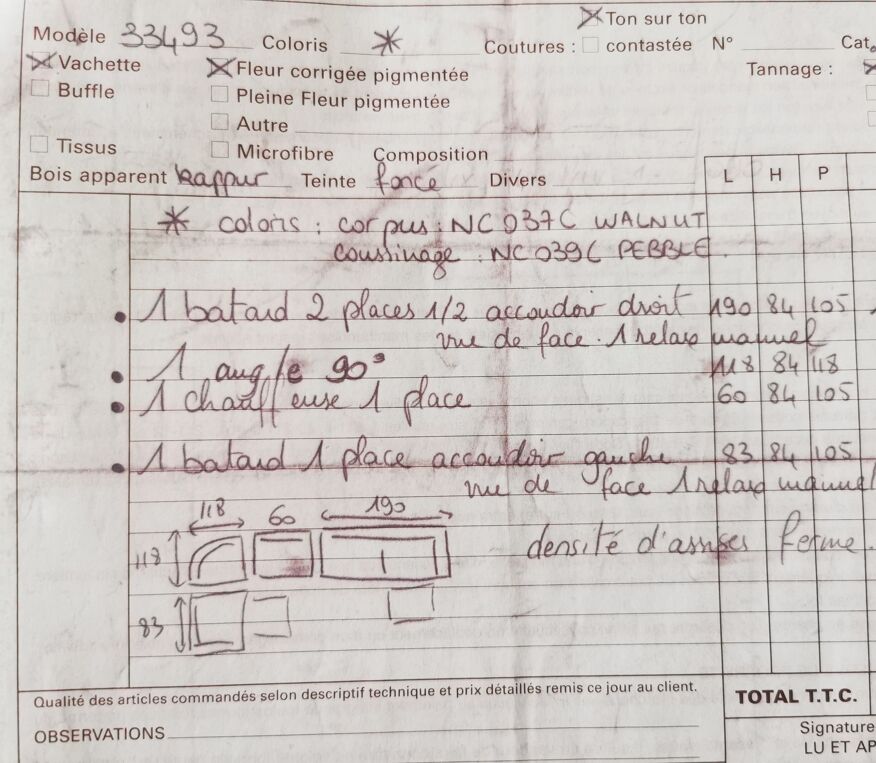 Ton sur ton
Modèle 33493 Coloris * Coutures : contastée N° Cat.
Vachette Fleur corrigée pigmentée Tannage :
Buffle Pleine Fleur pigmentée
Autre
Tissus Microfibre Composition
Bois apparent Teinte foncé Divers L H P
* coloris : corpus : NC 037C WALNUT
coussinage : NC 039C PEBBLE.
• 1 batard 2 places 1/2 accoudoir droit 190 84 105
vue de face. 1 relax manuel
• 1 angle 90° 118 84 118
• 1 chauffeuse 1 place 60 84 105
• 1 batard 1 place accoudoir gauche 83 84 105
vue de face 1 relax manuel
118 60 190
118 densité d'assises ferme.
83
Qualité des articles commandés selon descriptif technique et prix détaillés remis ce jour au client. TOTAL T.T.C.
OBSERVATIONS Signature
LU ET AP